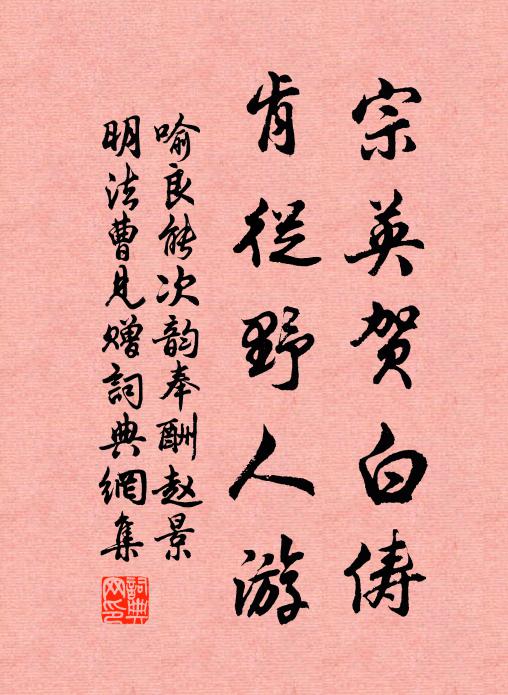 宗英贺白俦
肯従野人游
喻良能次韵奉酬赵景
明法曹见赠詞典網集